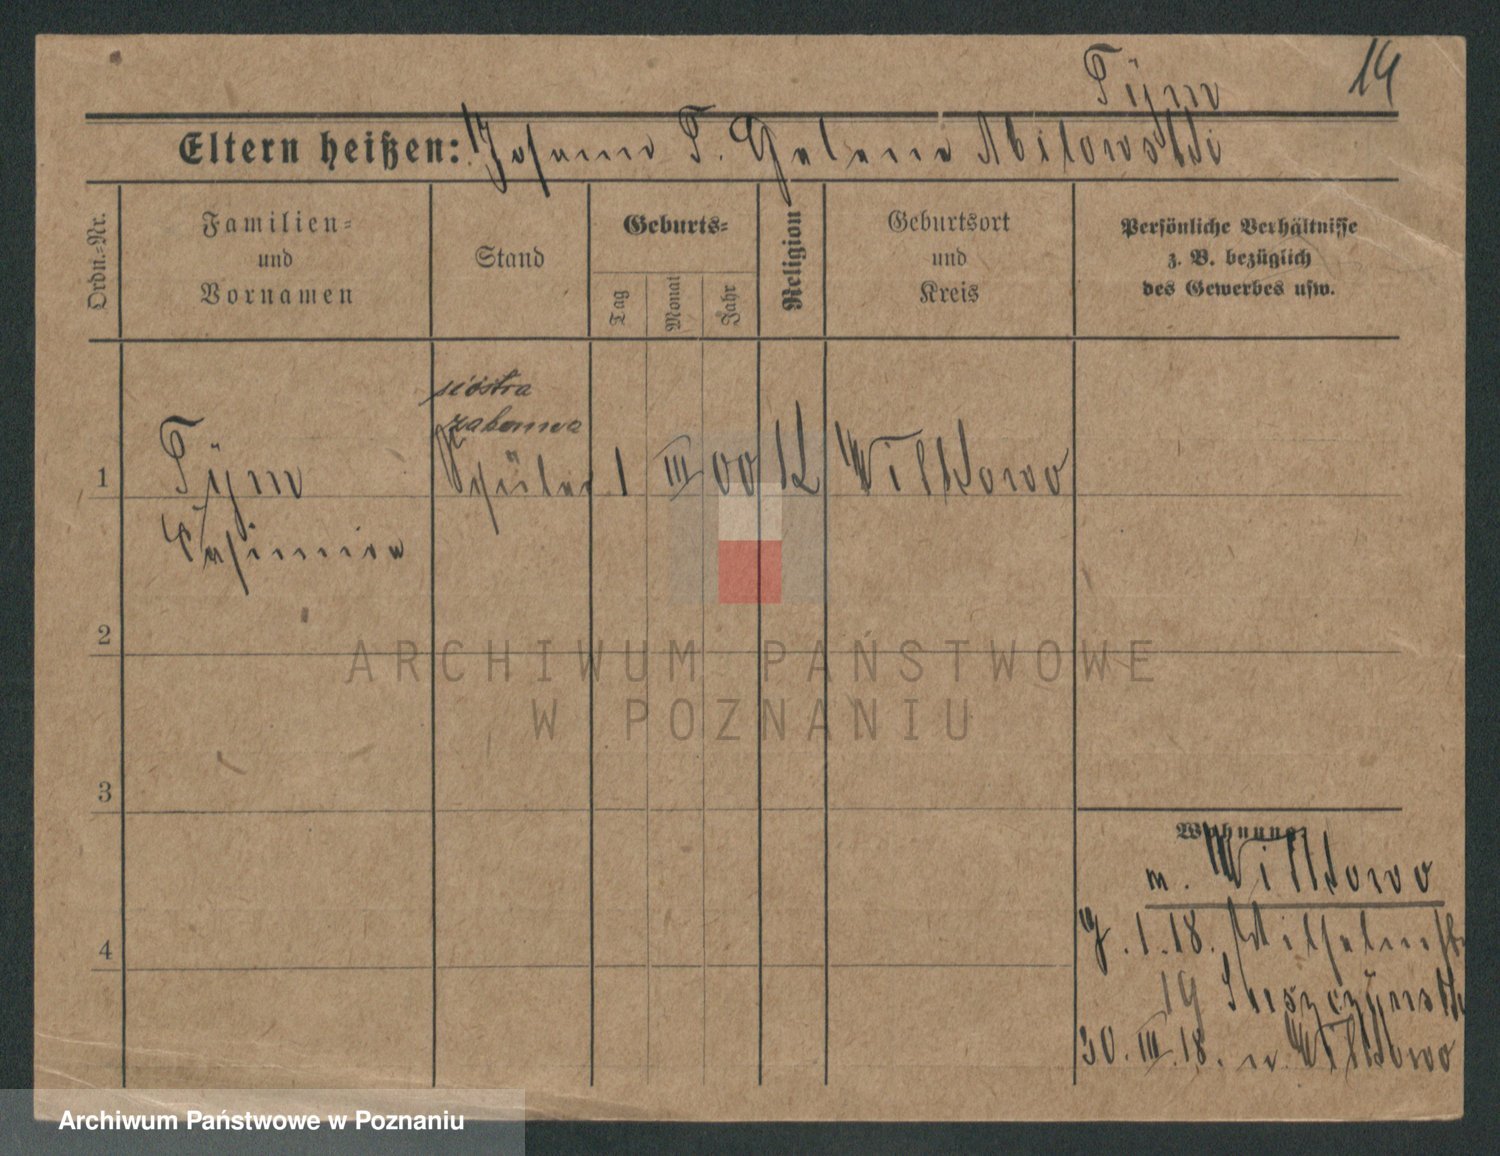 Tÿm 14
Eltern heißen: Johann T. Helene Abitowski
Ordn.-Nr.
Familien- und Vornamen
Stand
Geburts-
Tag
Monat
Jahr
Religion
Geburtsort und Kreis
Persönliche Verhältnisse z. B. bezüglich des Gewerbes usw.
siostra
zakonna
1 Tÿm Schüler 1 III 00 K Wilkowo
Casimira
2
3
4
Wohnung:
n. Wilkowo
7.1.18. Wilhelmstr
19
30.III.18. n. Wilkowo
ARCHIWUM PAŃSTWOWE
W POZNANIU
Archiwum Państwowe w Poznaniu